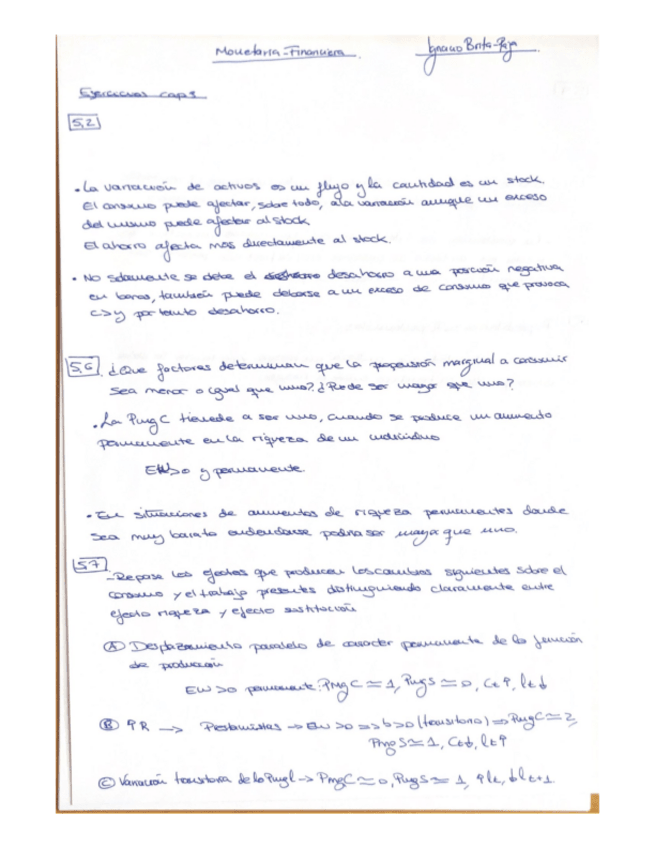 Monetaria-Financiera
Ignacio Brita-Paja
Ejercicios cap 5
5,2
• La variación de activos es un flujo y la cantidad es un stock.
El consumo puede afectar, sobre todo, a la variación aunque un exceso
del mismo puede afectar al stock.
El ahorro afecta más directamente al stock.
• No solamente se debe el desahorro a una posición negativa
en bonos, también puede deberse a un exceso de consumo que provoca
c>y por tanto desahorro.
5,6 ¿Que factores determinan que la propensión marginal a consumir
sea menor o igual que uno? ¿Puede ser mayor que uno?
• La PmgC tiende a ser uno, cuando se produce un aumento
permanente en la riqueza de un individuo
EW>0 y permanente.
• En situaciones de aumentos de riqueza permanentes donde
sea muy barato endeudarse podría ser mayor que uno.
5,7
- Repase los efectos que producen los cambios siguientes sobre el
consumo y el trabajo presentes distinguiendo claramente entre
efecto riqueza y efecto sustitución
Ⓐ Desplazamiento paralelo de caracter permanente de la función
de producción
EW>0 permanente: PMgC ≃ 1, PmgS ≃ 0, Ct↑, lt↓
Ⓑ ↑R → Prestamistas → EW>0 => b>0 (transitorio) => PmgC ≃ 2,
PmgS ≃ 1, Ct↓, lt↑
Ⓒ Variación transitoria de la Pmgl → PmgC ≃ 0, PmgS ≃ 1, ↑lt, ↓lt+1.